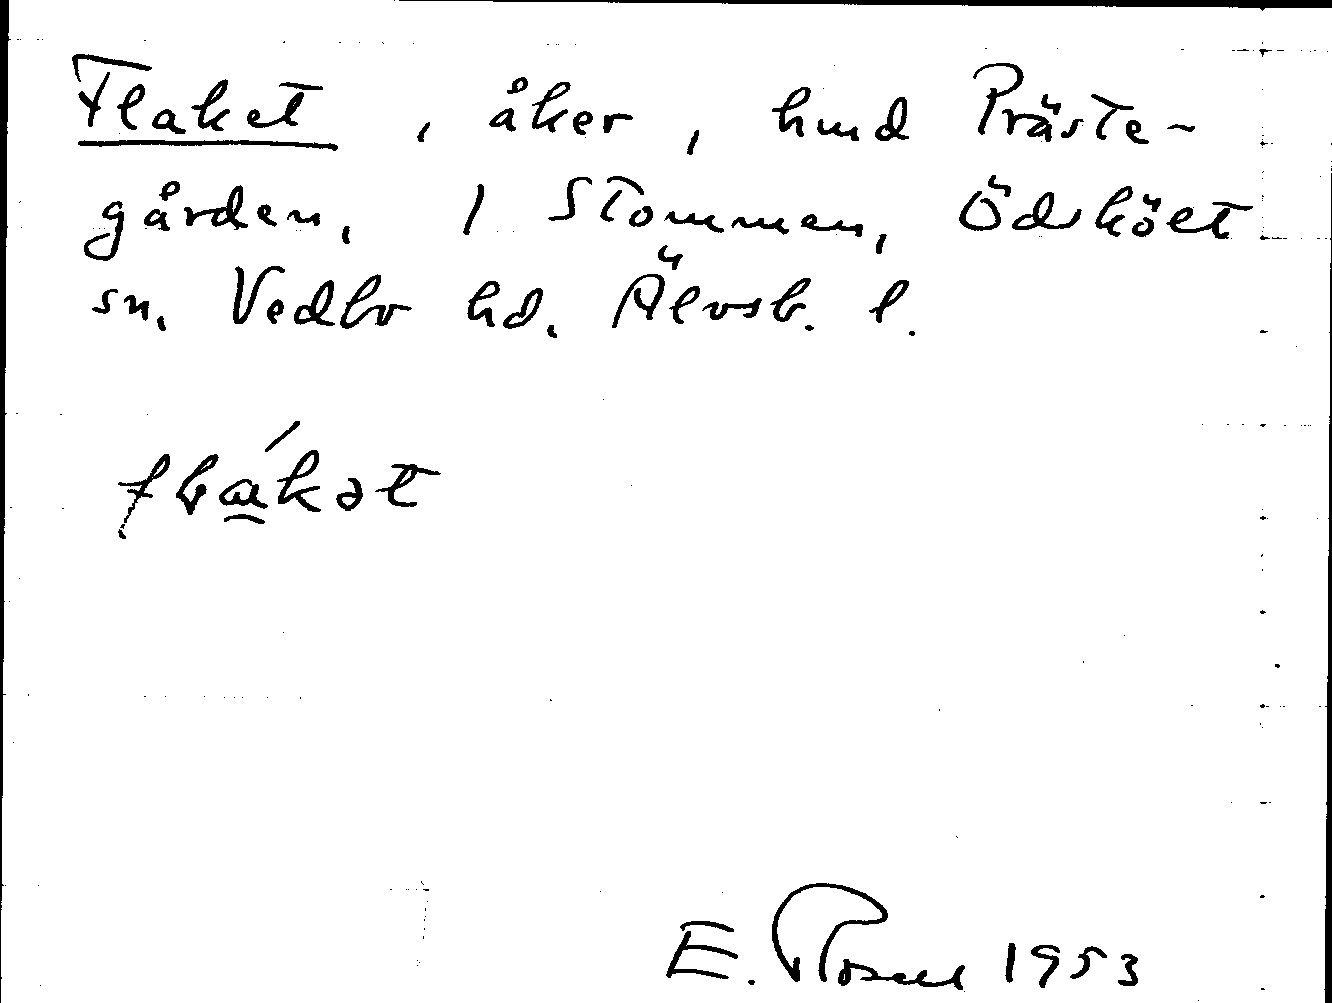 Flaket, åker, hmd Präste-
gården, 1 Stommen, Ödsköлt
sn. Vedbo hd. Älvsb. l.
E. Rosell 1953